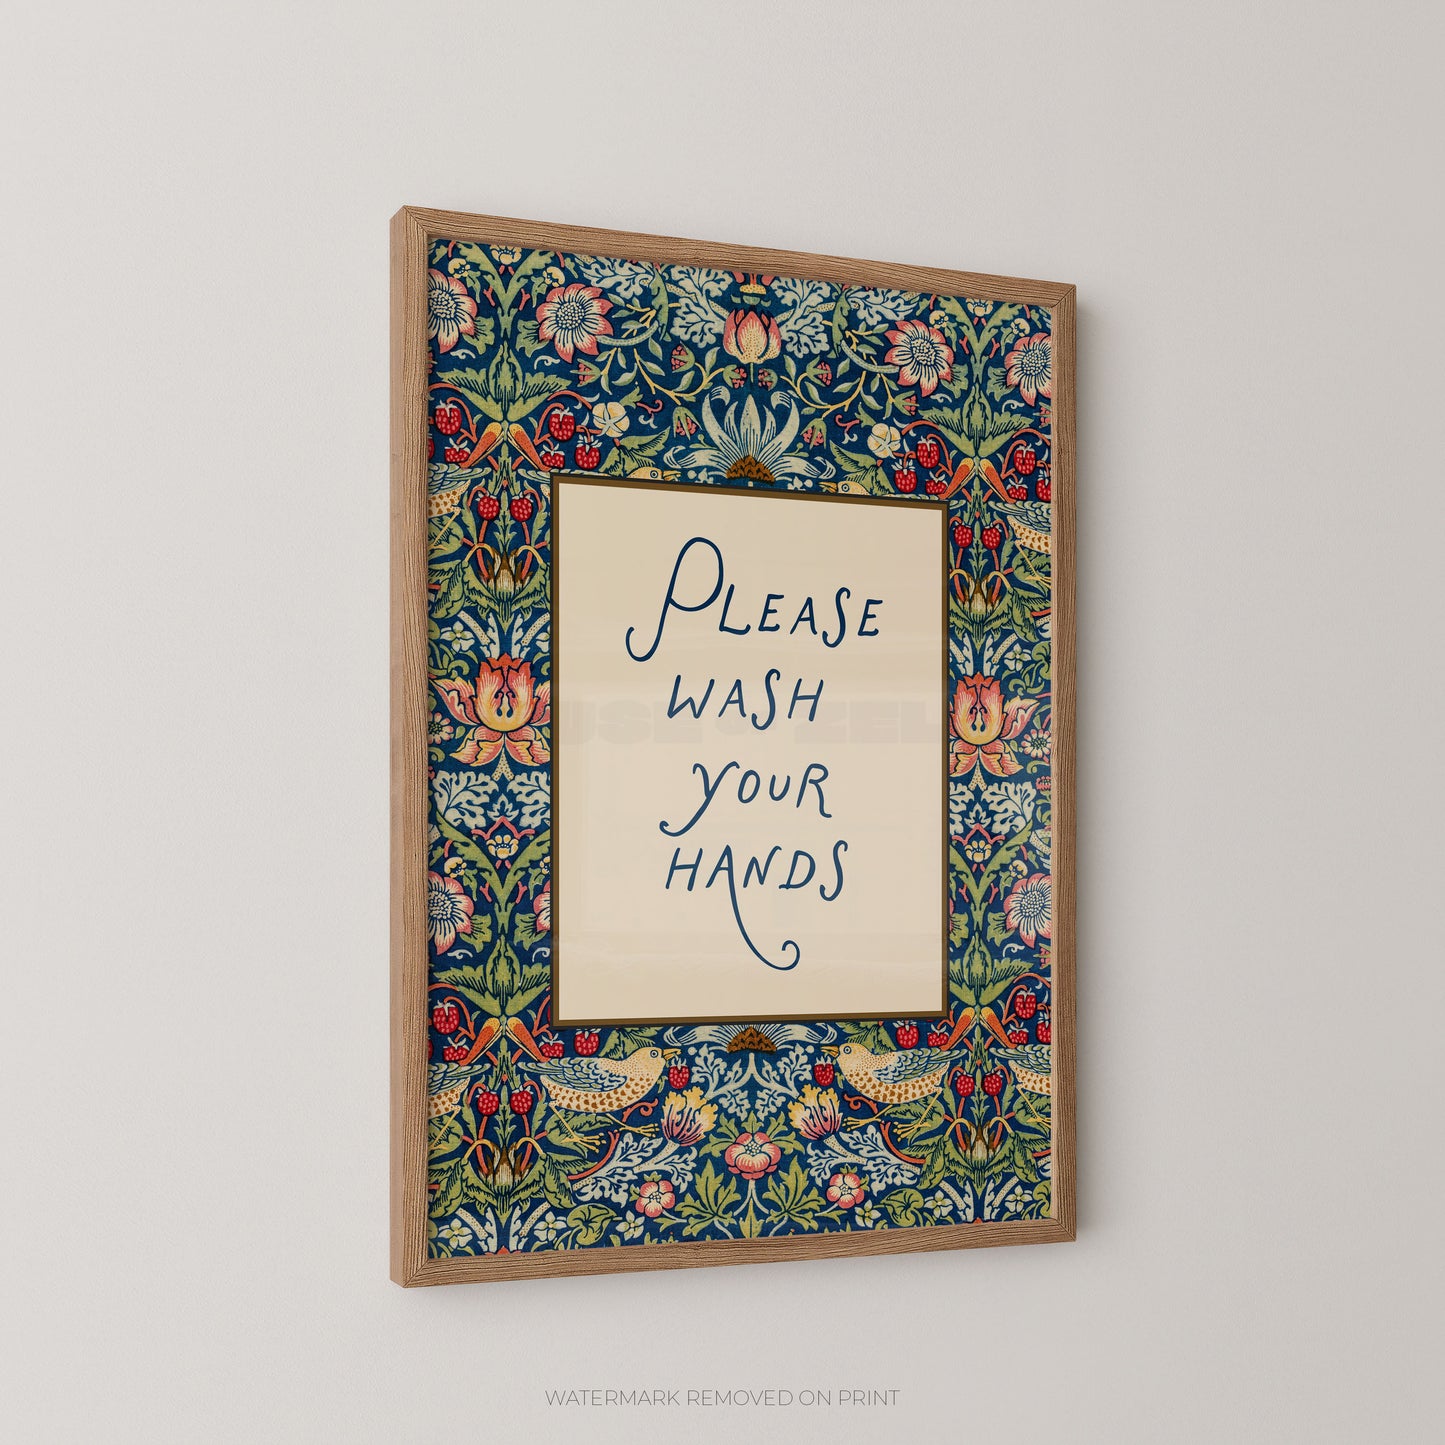 Please
wash
your
hands
WATERMARK REMOVED ON PRINT